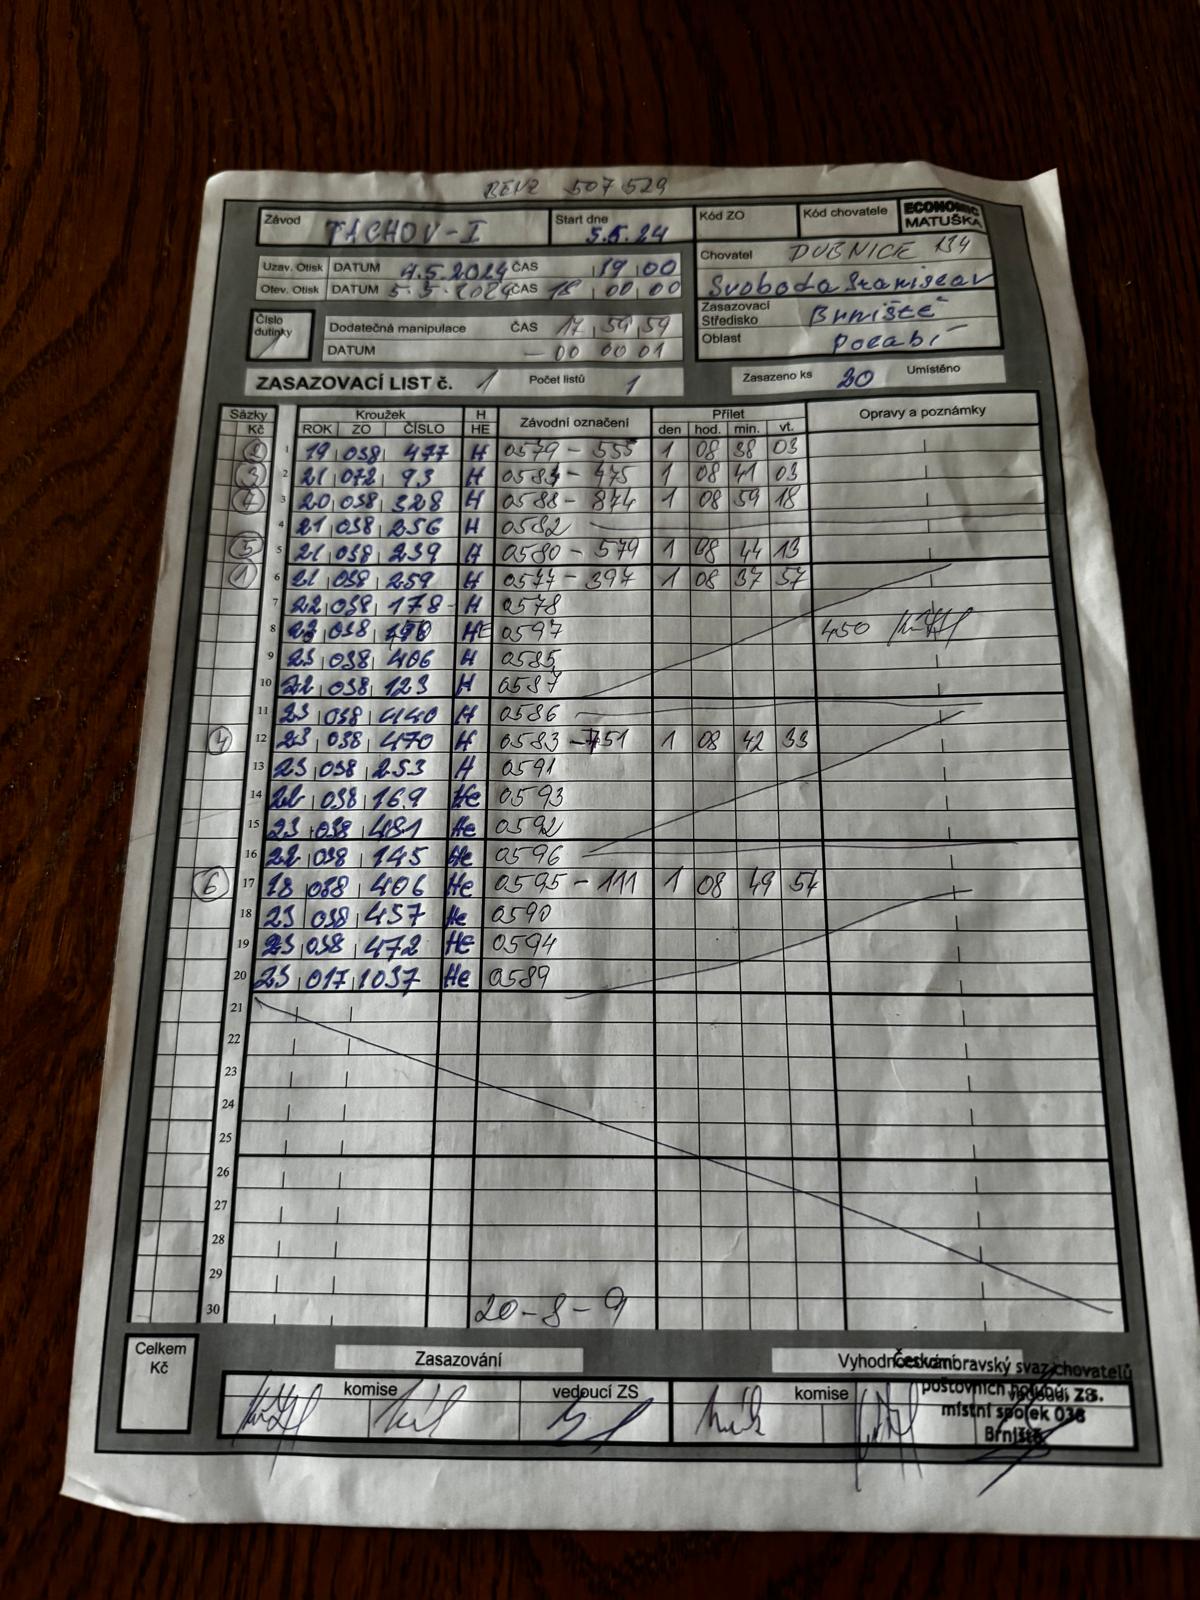 BENZ 507 529
Závod TACHOV-I Start dne 5.5.24 Kód ZO Kód chovatele ECONOMIC MATUŠKA
Uzav. Otisk DATUM 4.5.2024 ČAS 19 00
Otev. Otisk DATUM 5.5.2024 ČAS 18 00 00
Chovatel DUBNICE 134
Svoboda
Zasazovací Středisko Brniště
Oblast Polabí
Číslo dutinky 1
Dodatečná manipulace ČAS 17 59 59
DATUM - 00 00 01
ZASAZOVACÍ LIST č. 1 Počet listů 1 Zasazeno ks 20 Umístěno
Sázky Kč Kroužek ROK ZO ČÍSLO H HE Závodní označení Přílet den hod. min. vt. Opravy a poznámky
2 1 19 038 477 H 0579 - 555 1 08 38 03
3 2 21 072 93 H 0584 - 475 1 08 41 03
7 3 20 038 328 H 0588 - 874 1 08 59 18
4 21 038 256 H 0582
5 5 21 038 239 H 0580 - 579 1 08 44 13
1 6 21 038 259 H 0577 - 397 1 08 37 57
7 22 038 178 H 0578
8 038 HE 0597 450
9 23 038 406 H 0585
10 22 038 123 H 0587
11 23 038 440 H 0586
4 12 23 038 470 H 0583 - 751 1 08 42 33
13 23 038 253 H 0591
14 22 038 169 He 0593
15 23 038 481 He 0592
16 22 038 145 He 0596
6 17 18 038 406 He 0595 - 111 1 08 49 54
18 23 038 457 He 0590
19 23 038 472 He 0594
20 23 017 1037 He 0589
21
22
23
24
25
26
27
28
29
30 20 - 8 - 9
Celkem Kč
Zasazování
komise vedoucí ZS komise
Českomoravský svaz chovatelů
poštovních holubů, z.s.
místní spolek 038
Brniště